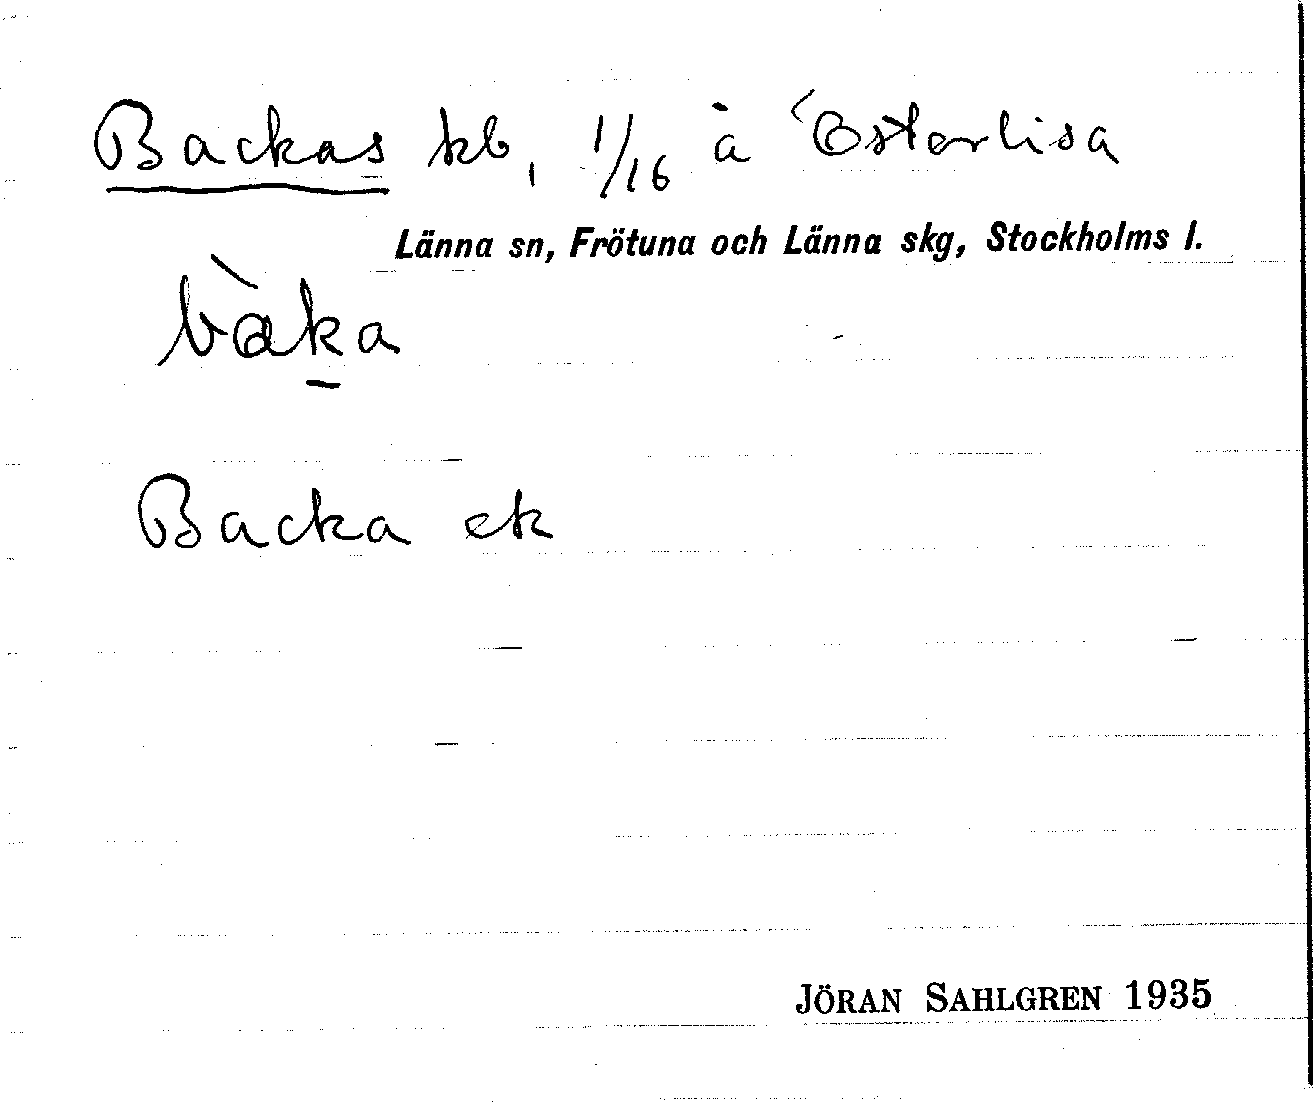 Backas kb, 1/16 å Österlisa
Länna sn, Frötuna och Länna skg, Stockholms l.
bàka
Backa ek
JÖRAN SAHLGREN 1935